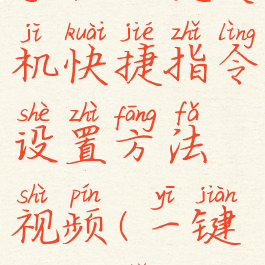 jī kuài jié zhǐ lìng
机快捷指令
shè zhì fāng fǎ
设置方法
shì pín yī jiàn
视频(一键